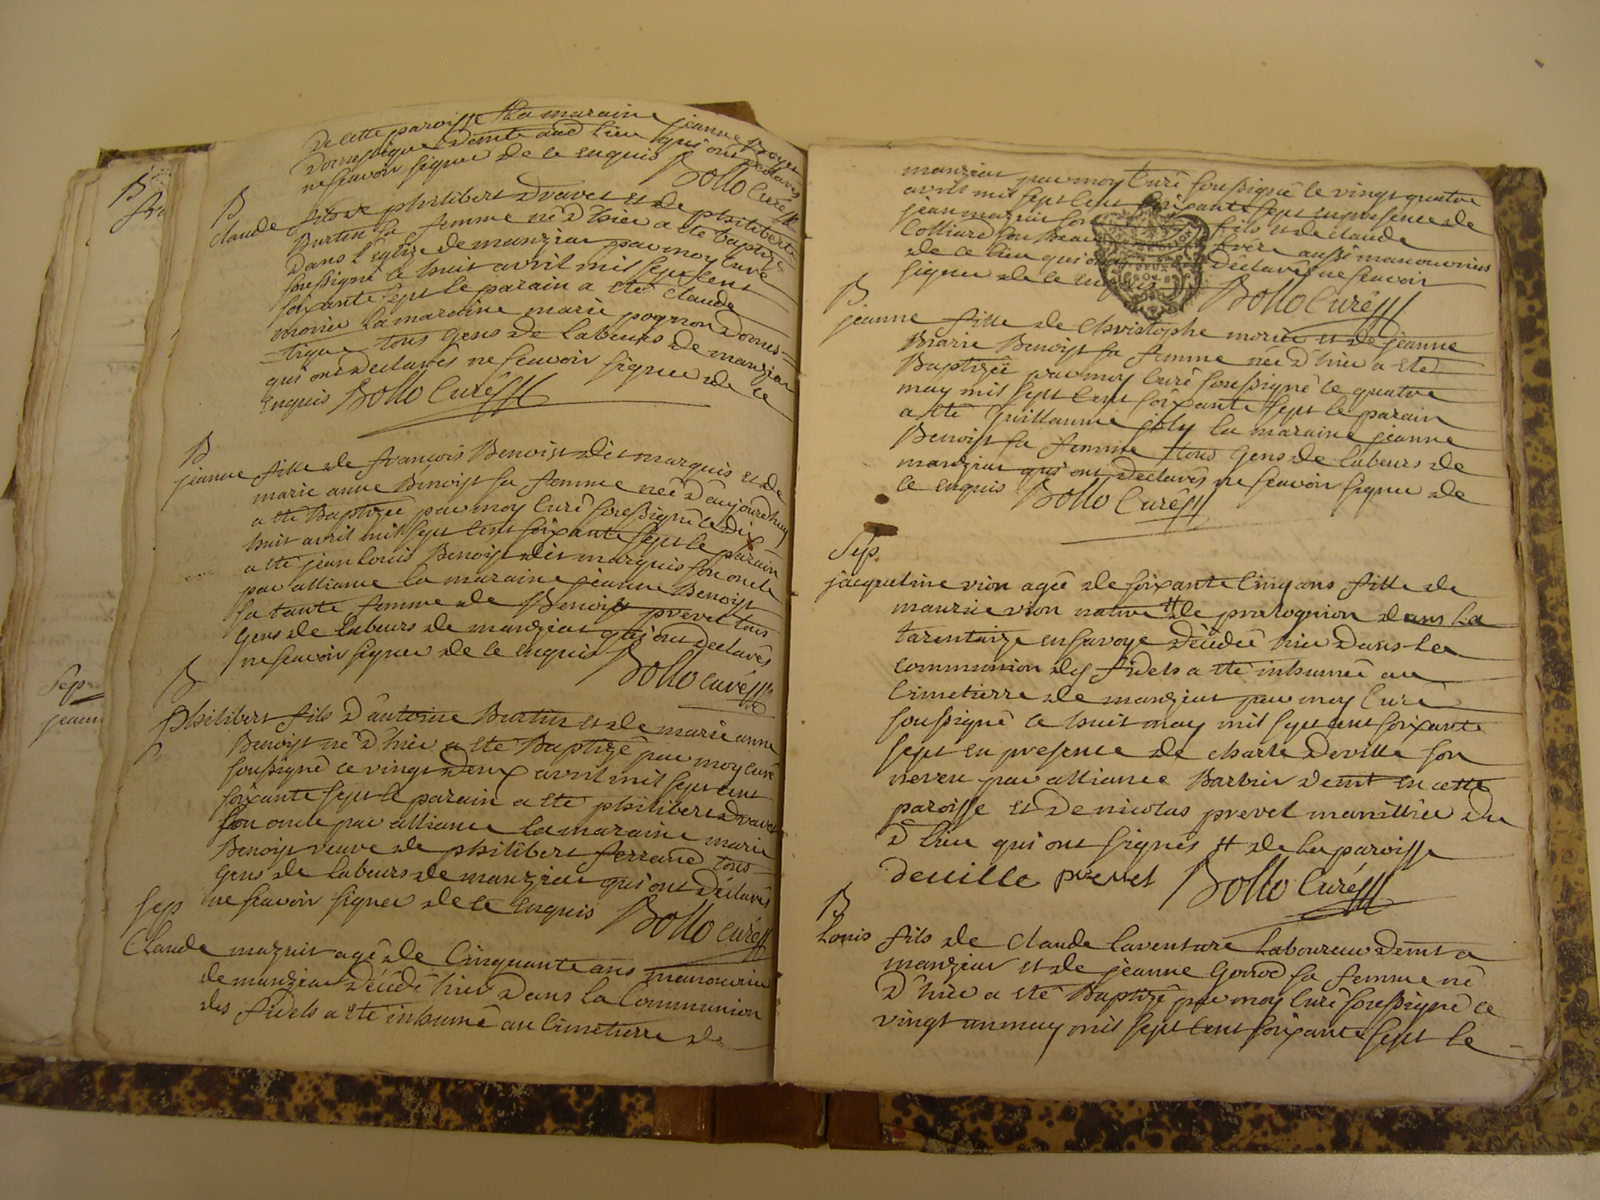 de cette paroisse & la maraine jeanne
domestique demte aud lieu qui ont declarés
ne scavoir signer de ce enquis Bollo Curé
B
claude fils de philibert Dravet et de philiberte
Burtin sa femme né d'hier a eté baptizé
dans l'eglize de manziat par moy curé
soussigné le huit avril mil sept cent
soixante sept le parain a eté claude
morier la maraine marie pognon domes=
=tique tous gens de labeurs de manziat
qui ont declarés ne scavoir signer de ce
enquis Bollo Curé
B
jeanne fille de francois Benoist dit marquis et de
marie anne Benoist sa femme née d'aujourd'huy
a eté Baptizée par moy Curé soussigné le dix
huit avril mil sept cent soixante sept le parain
a eté jean louis Benoist dit marquis son oncle
par alliance la maraine jeanne Benoist
sa tante femme de Benoist prevet tous
gens de labeurs de manziat qui ont declarés
ne scavoir signer de ce enquis Bollo curé
B
philibert fils d'antoine Burtin et de marie anne
Benoist né d'hier a eté Baptizé par moy curé
soussigné ce vingt deux avril mil sept cent
soixante sept le parain a eté philibert Dravet
son oncle par alliance la maraine marie
Benoist veuve de philibert ferrand tous
gens de labeurs de manziat qui ont déclarés
ne scavoir signer de ce enquis Bollo curé
Sep
Claude mazuir agé de Cinquante ans manouvrier
de manziat décédé hier dans la Communion
des fidels a eté inhumé au Cimetierre de
Sep
jeann
manziat par moy Curé soussigné le vingt quatre
avril mil sept cent soixante sept en presence de
jean mazuir son fils et de claude
Colliard son beau frere aussi manouvriers
de ce lieu qui ont déclarés ne scavoir
signer de ce enquis Bollo Curé
B
jeanne fille de Christophe morier et de jeanne
Marie Benoist sa femme née d'hier a eté
Baptizée par moy Curé soussigné le quatre
may mil sept cent soixante sept le parain
a eté guillaume joly la maraine jeanne
Benoist sa femme tous gens de labeurs de
manziat qui ont declarés ne scavoir signer de
ce enquis Bollo Curé
Sep.
jacqueline vion agée de soixante cinq ans fille de
maurice vion native # de pralognion dans la
tarentaize en savoye décédée hier dans la
communion des fidels a eté inhumée au
Cimetierre de manziat par moy Curé
soussigné le huit may mil sept cent soixante
sept en presence de charle deville son
neveu par alliance Barbier demt en cette
paroisse et de nicolas prevet manillier du
d lieu qui ont signés # de la paroisse
deville prevet Bollo Curé
B
Louis fils de claude Laventure laboureur demt a
manziat et de jeanne Gonod sa femme né
d'hier a eté Baptizé par moy Curé soussigné ce
vingt un may mil sept cent soixante sept le